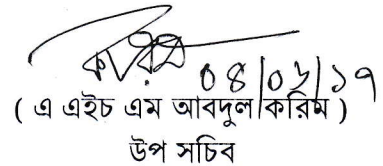 ০৪/০৬/১৭
( এ এইচ এম আবদুল করিম )
উপ সচিব